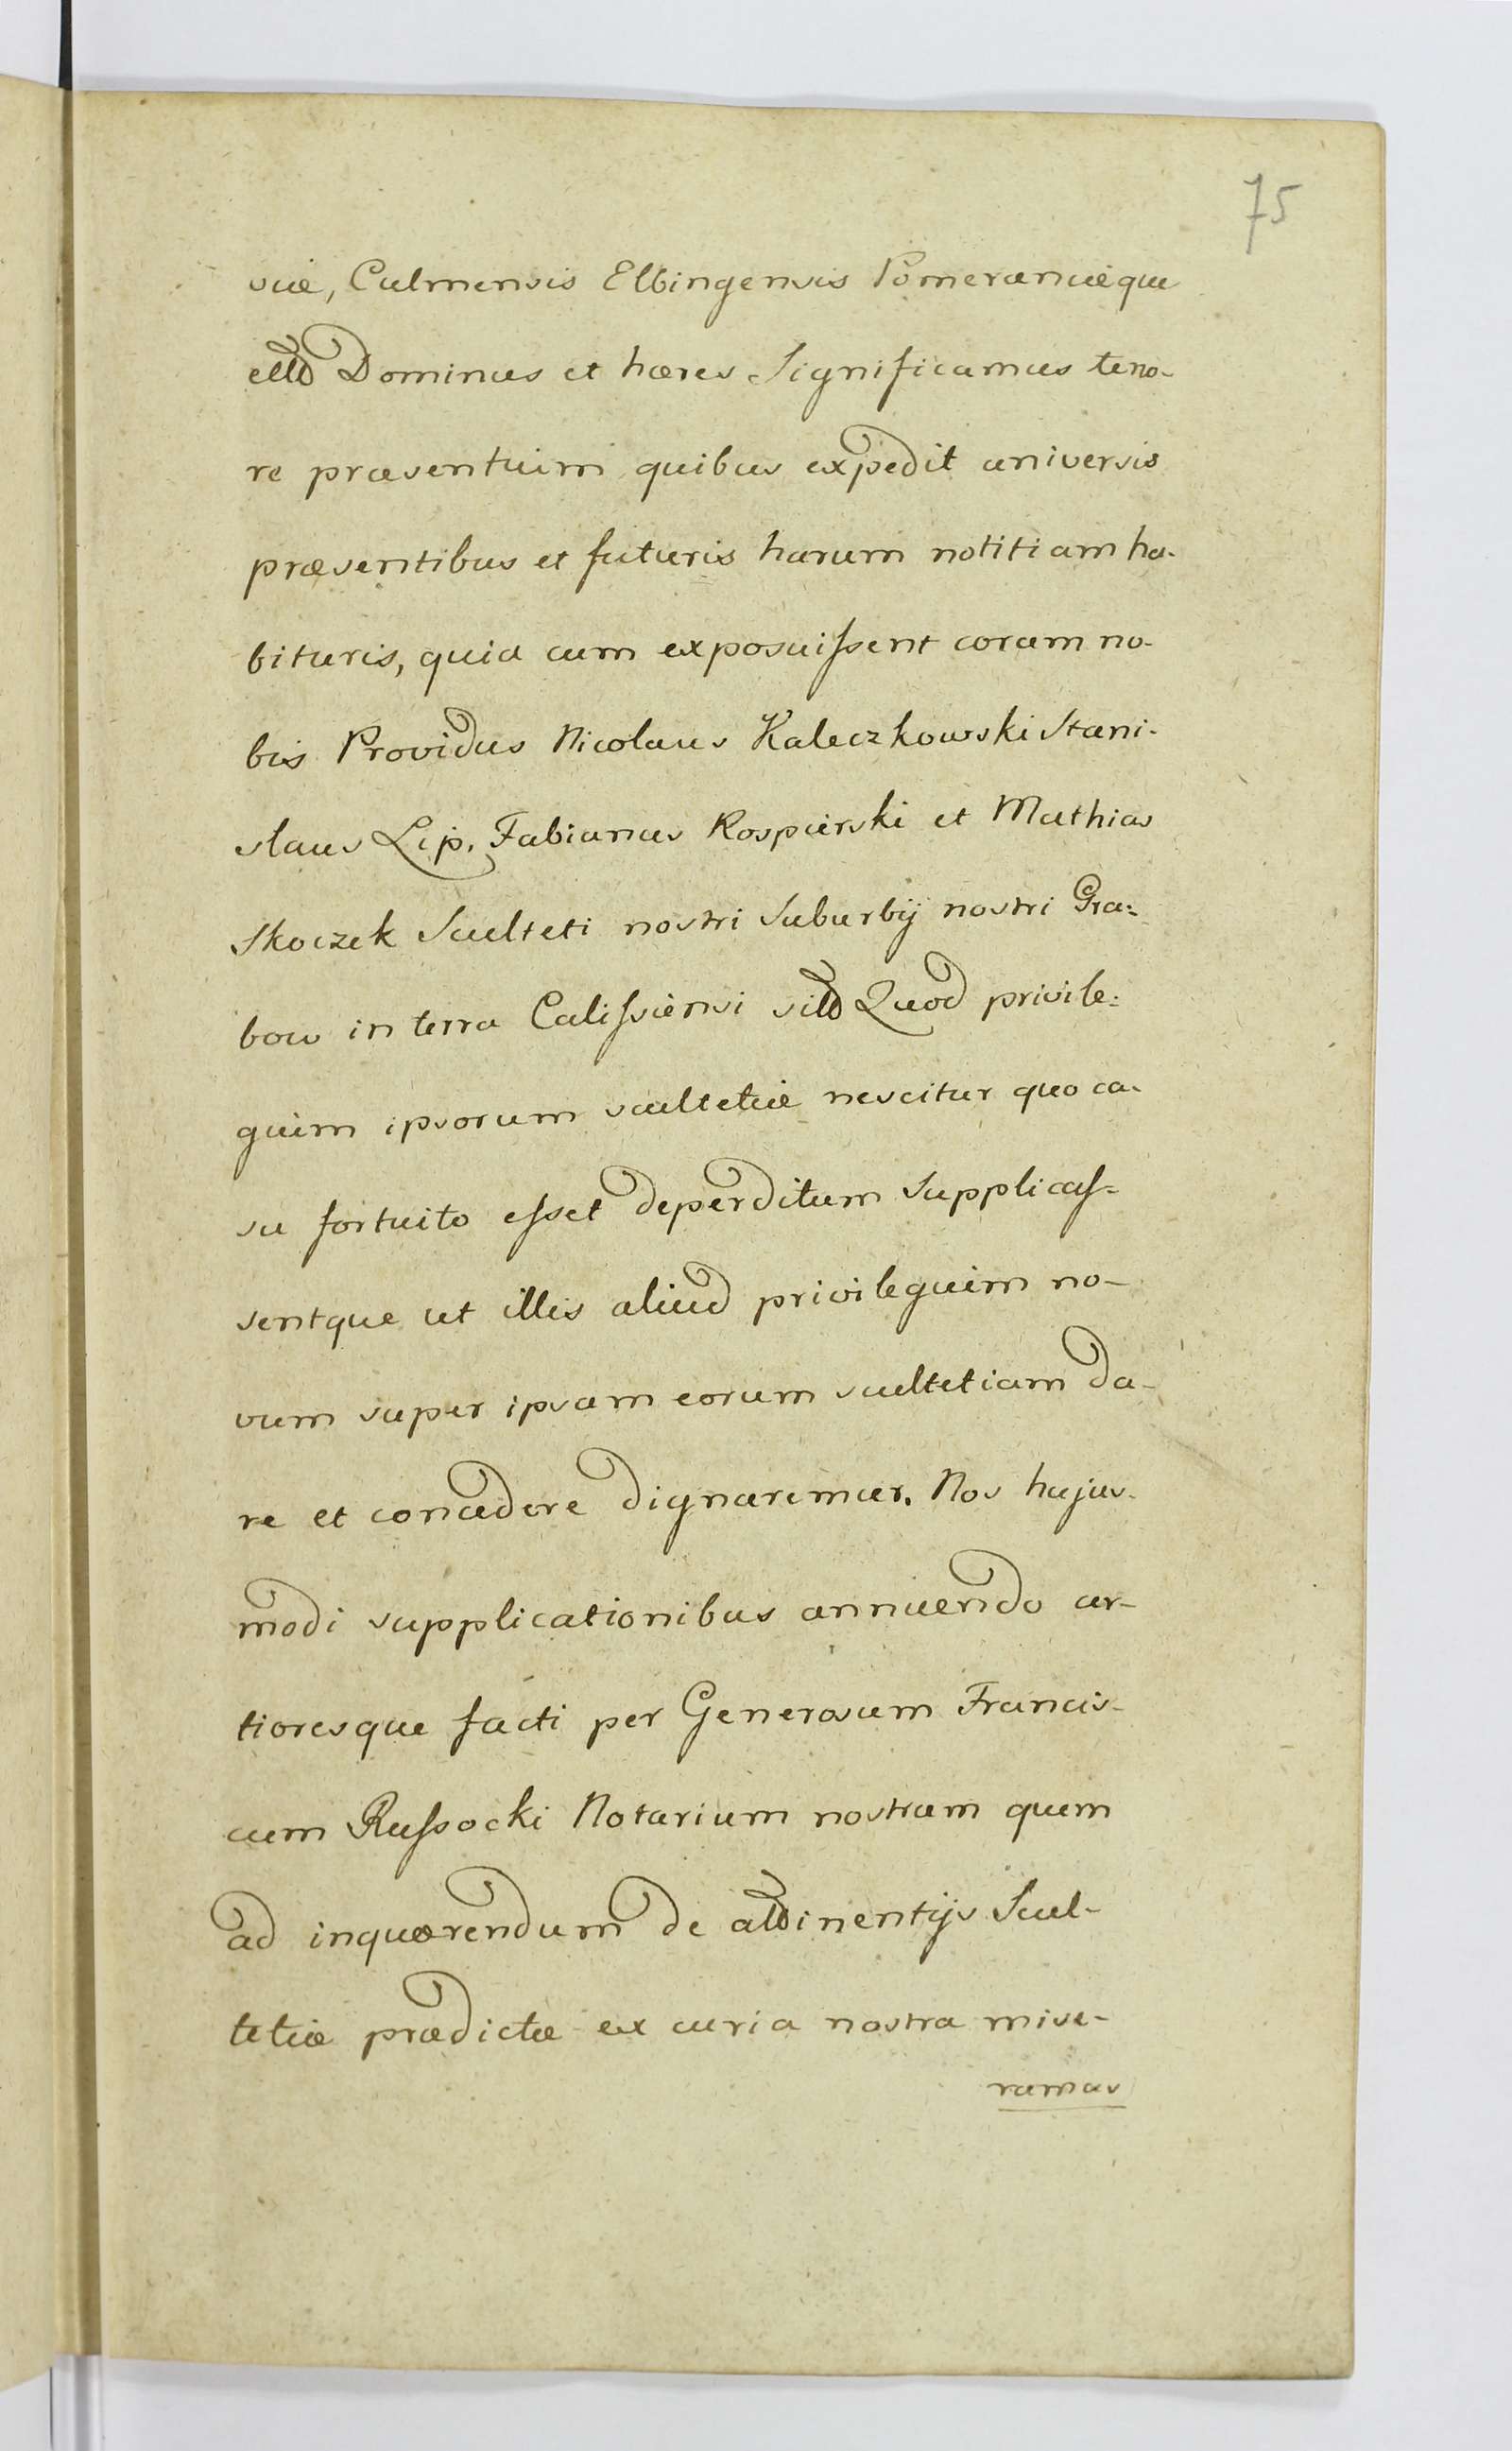 75
siæ, Culmensis Elbingensis Pomeraniæque
ettc Dominus et hæres Significamus teno-
re præsentium quibus expedit universis
præsentibus et futuris harum notitiam ha-
bituris, quia cum exposuissent coram no-
bis Providus Nicolaus Kaleczkowski Stani-
slaus Lip. Fabianus Rospierski et Mathias
Skoczek Sculteti nostri Suburbij nostri Gra=
bow in terra Calissiensi Quod privile=
gium ipsorum scultetiæ nescitur quo ca-
su fortuito esset deperditum Supplicas=
sentque ut illis aliud privilegium no-
vum super ipsam eorum scultetiam da-
re et concedere dignaremur. Nos hujus-
modi supplicationibus annuendo cer-
tioresque facti per Generosum Francis-
cum Russocki Notarium nostrum quem
ad inquærendum de attinentijs Scul-
tetiæ prædictæ ex curia nostra mise-
ramus